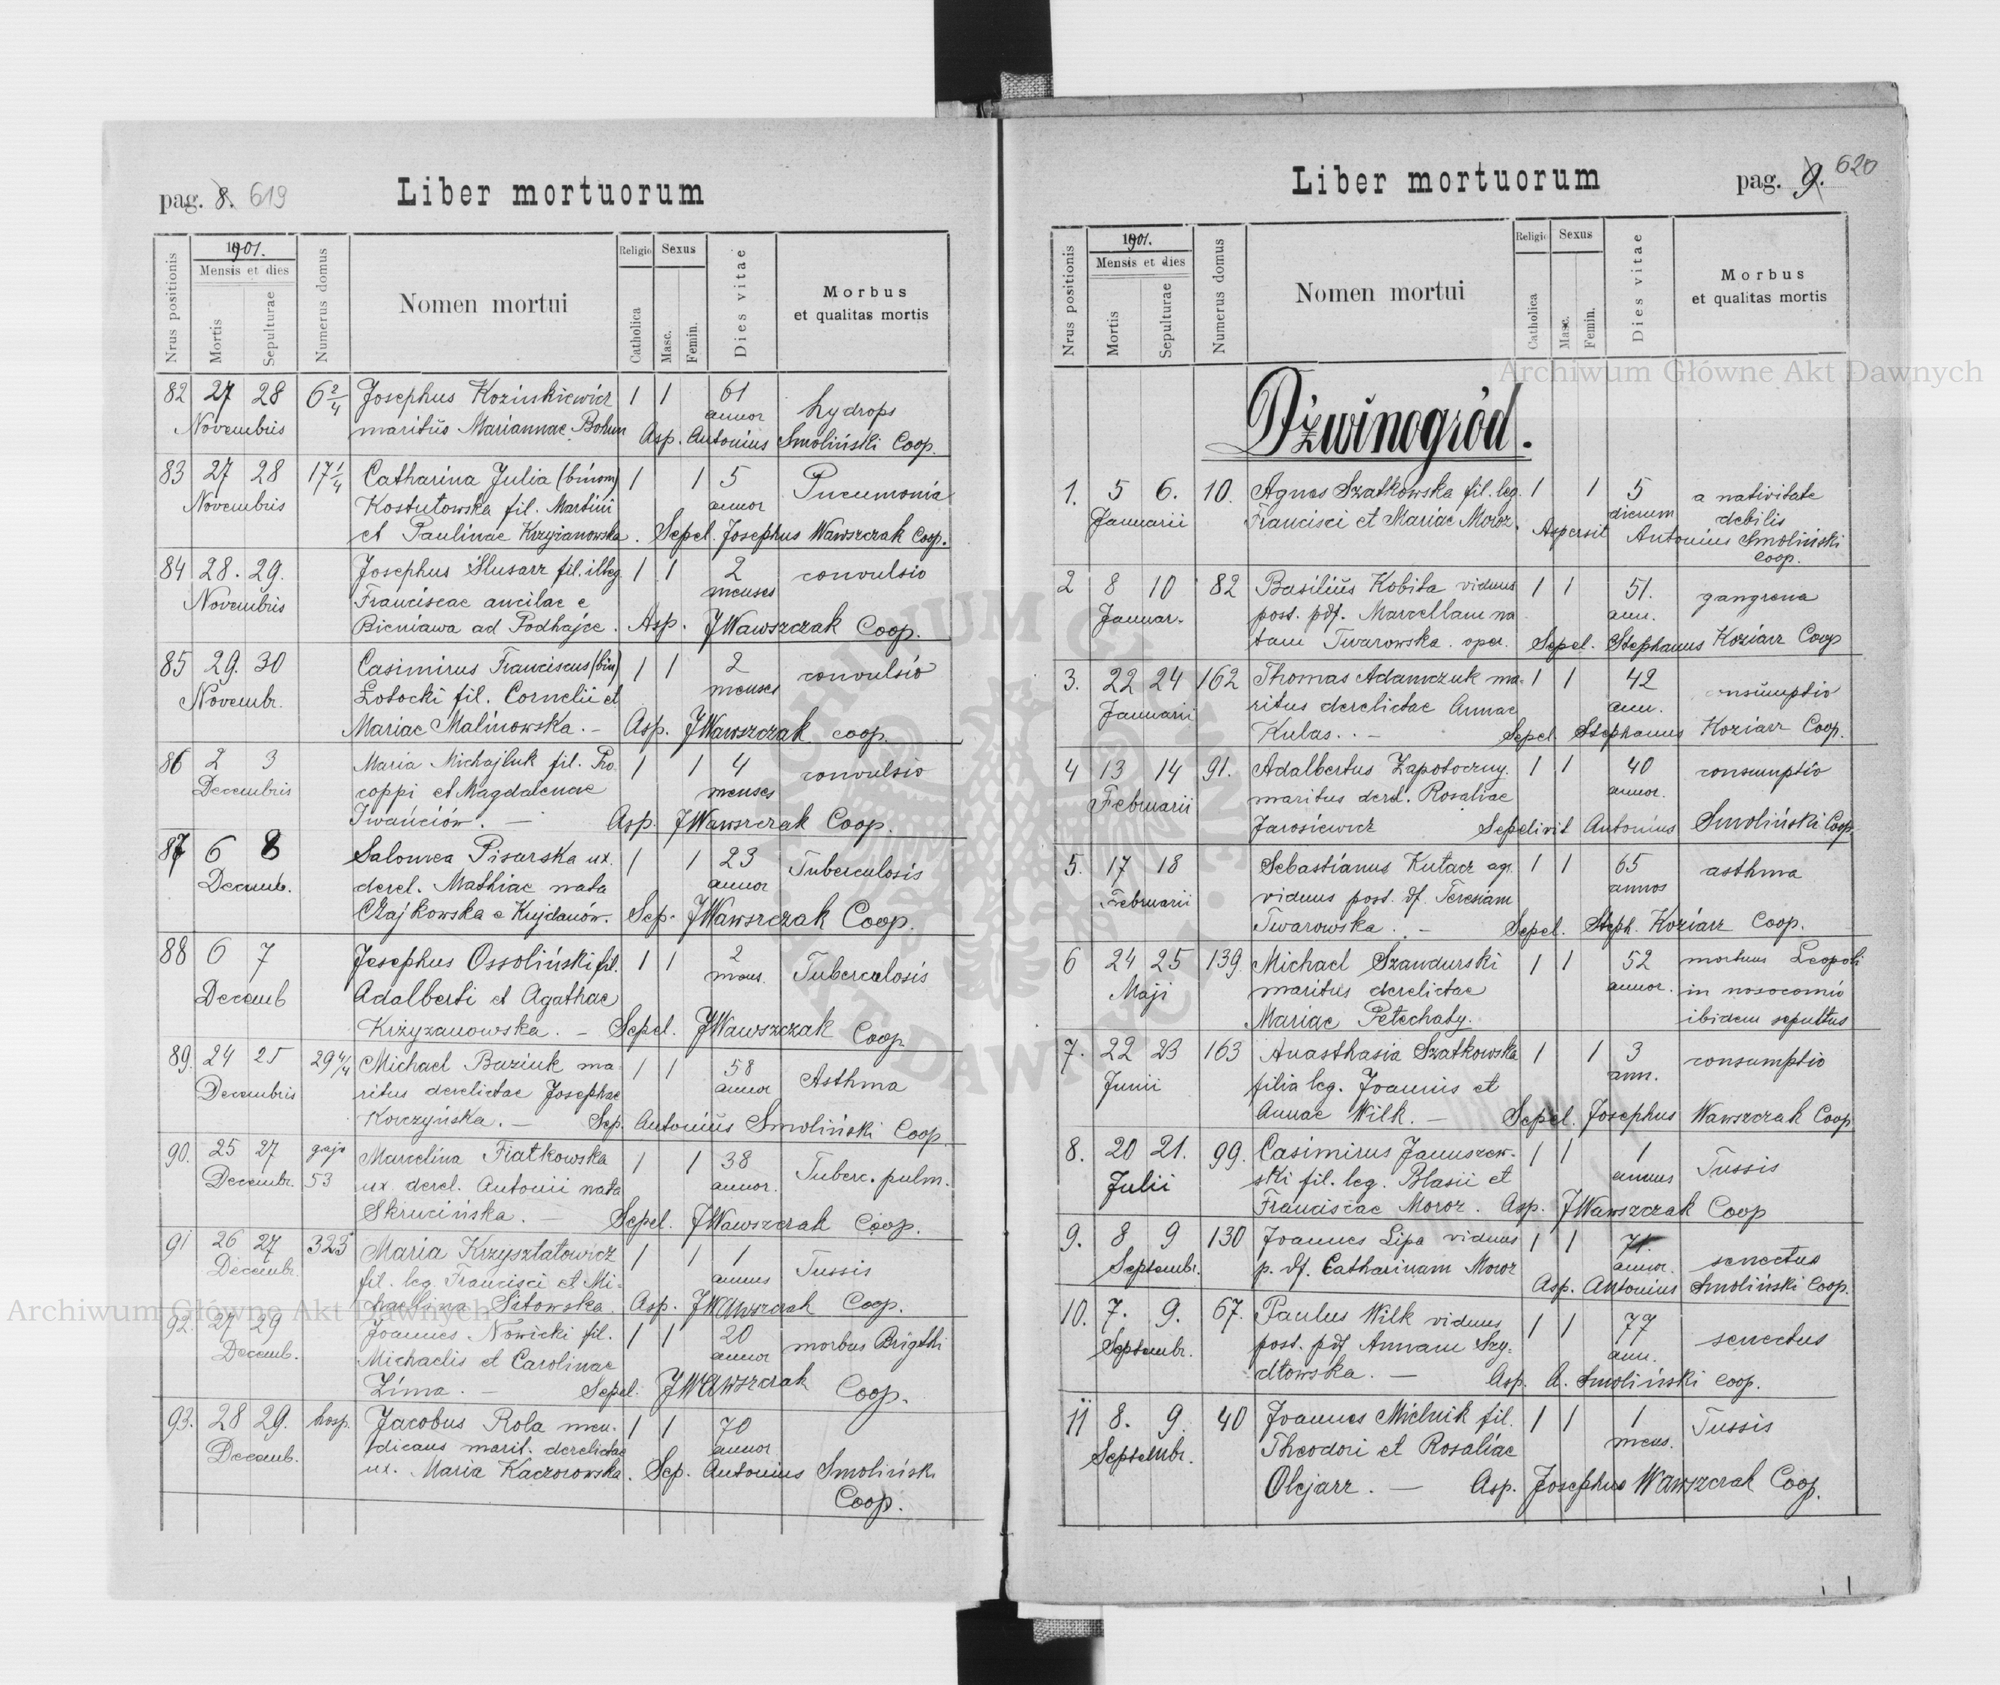 pag. 8. 619
Liber mortuorum
1901.
Nrus positionis
Mensis et dies
Mortis
Sepulturae
Numerus domus
Nomen mortui
Religio
Catholica
Sexus
Masc.
Femin.
Dies vitae
Morbus
et qualitas mortis
82 27 28 6 2/4 Josephus Kozinkiewicz 1 1 61 hydrops
Novembris maritus Mariannae Bohun annor
Asp. Antonius Smoliński Coop.
83 27 28 17 1/4 Catharina Julia (binom) 1 1 5 Pneumonia
Novembris Kostutowska fil. Martini annor
et Paulinae Krzyżanowska. Sepel. Josephus Wawszczak Coop.
84 28. 29. Josephus Slusarz fil. illeg. 1 1 2 convulsio
Novembris Franciscae ancilae e menses
Bieniawa ad Podhajce. Asp. JWawszczak Coop.
85 29. 30 Casimirus Franciscus (bin) 1 1 2 convulsio
Novembr. Łotocki fil. Cornelii et menses
Mariae Malinowska. - Asp. JWawszczak coop.
86 2 3 Maria Michajluk fil. Pro- 1 1 4 convulsio
Decembris coppi et Magdalenae menses
Iwańciów. — Asp. JWawszczak Coop.
87 6 8 Salomea Pisarska ux. 1 1 23 Tuberculosis
Decemb. derel. Mathiae nata annor
Czajkowska e Kujdanów. Sep. JWawszczak Coop.
88 6 7 Josephus Ossoliński fil. 1 1 2 Tuberculosis
Decemb Adalberti et Agathae mens.
Krzyżanowska. - Sepel. JWawszczak Coop
89. 24 25 29 4/4 Michael Baziuk ma- 1 1 58 Asthma
Decembris ritus derelictae Josephae annor
Korczyńska. — Sep. Antonius Smoliński Coop
90. 25 27 gajo Marcelina Fiatkowska 1 1 38 Tuberc. pulm.
Decembr. 53 ux. derel. Antonii nata annor.
Skrucińska. — Sepel. JWawszczak Coop.
91 26 27 323 Maria Krzysztatowicz 1 1 1 Tussis
Decembr. fil. leg. Francisci et Mi- annus
chaelina Sitowska. Asp. JWawszczak Coop.
92. 27 29 Joannes Nowicki fil. 1 1 20 morbus Brigthi
Decemb. Michaelis et Carolinae annor
Zima. — Sepel. JWawszczak Coop.
93. 28 29. hosp. Jacobus Rola men- 1 1 70
Decemb. dicans marit. derelictae annor
ux. Maria Kaczorowska. Sep. Antonius Smoliński
Coop.
Liber mortuorum
pag. 9. 620
1901.
Nrus positionis
Mensis et dies
Mortis
Sepulturae
Numerus domus
Nomen mortui
Religio
Catholica
Sexus
Masc.
Femin.
Dies vitae
Morbus
et qualitas mortis
Dźwinogród.
1. 5 6. 10. Agnes Szatkowska fil. leg. 1 1 5 a nativitate
Januarii Francisci et Mariae Moroz. dierum debilis
Aspersit Antonius Smoliński
coop.
2 8 10 82 Basilius Kobita viduus 1 1 51. gangrena
Januar. post. pdf. Marcellam na ann.
tam Twarowska. oper. Sepel. Stephanus Koziarz Coop
3. 22 24 162 Thomas Adamczuk ma- 1 1 42 consumptio
Januarii ritus derelictae Annae ann.
Kulas. . - Sepel. Stephanus Koziarz Coop.
4 13 14 91. Adalbertus Zapotoczny. 1 1 40 consumptio
Februarii maritus derel. Rosaliae annor.
Jarosiewicz Sepelivit Antonius Smoliński Coop.
5. 17 18 Sebastianus Kutacz agr. 1 1 65 asthma
Februarii viduus post. df. Teresiam annos
Twarowska. . - Sepel. Steph. Koziarz Coop.
6 24 25 139. Michael Szandurski 1 1 52 mortuus Leopoli
Maji maritus derelictae annor. in nosocomio
Mariae Petechaty. ibidem sepultus
7. 22 23 163 Anasthasia Szatkowska 1 1 3 consumptio
Junii filia leg. Joannis et ann.
Annae Wilk. — Sepel. Josephus Wawszczak Coop
8. 20 21. 99. Casimirus Januszew- 1 1 1 Tussis
Julii ski fil. leg. Blasii et annus
Franciscae Moroz. Asp. JWawszczak Coop
9. 8 9 130 Joannes Lipa viduus 1 1 71. senectus
Septembr. p. df. Catharinam Moroz annor.
Asp. Antonius Smoliński Coop.
10. 7. 9. 67. Paulus Wilk viduus 1 1 77 senectus
Septembr. post. pdf Annam Szy- ann.
dtowska. — Asp. A. Smoliński Coop.
11 8. 9. 40 Joannes Mielnik fil. 1 1 1 Tussis
Septembr. Theodori et Rosaliae mens.
Olejarz. — Asp. Josephus Wawszczak Coop.
Archiwum Główne Akt Dawnych
Archiwum Główne Akt Dawnych
ARCHIWUM GŁÓWNE AKT DAWNYCH